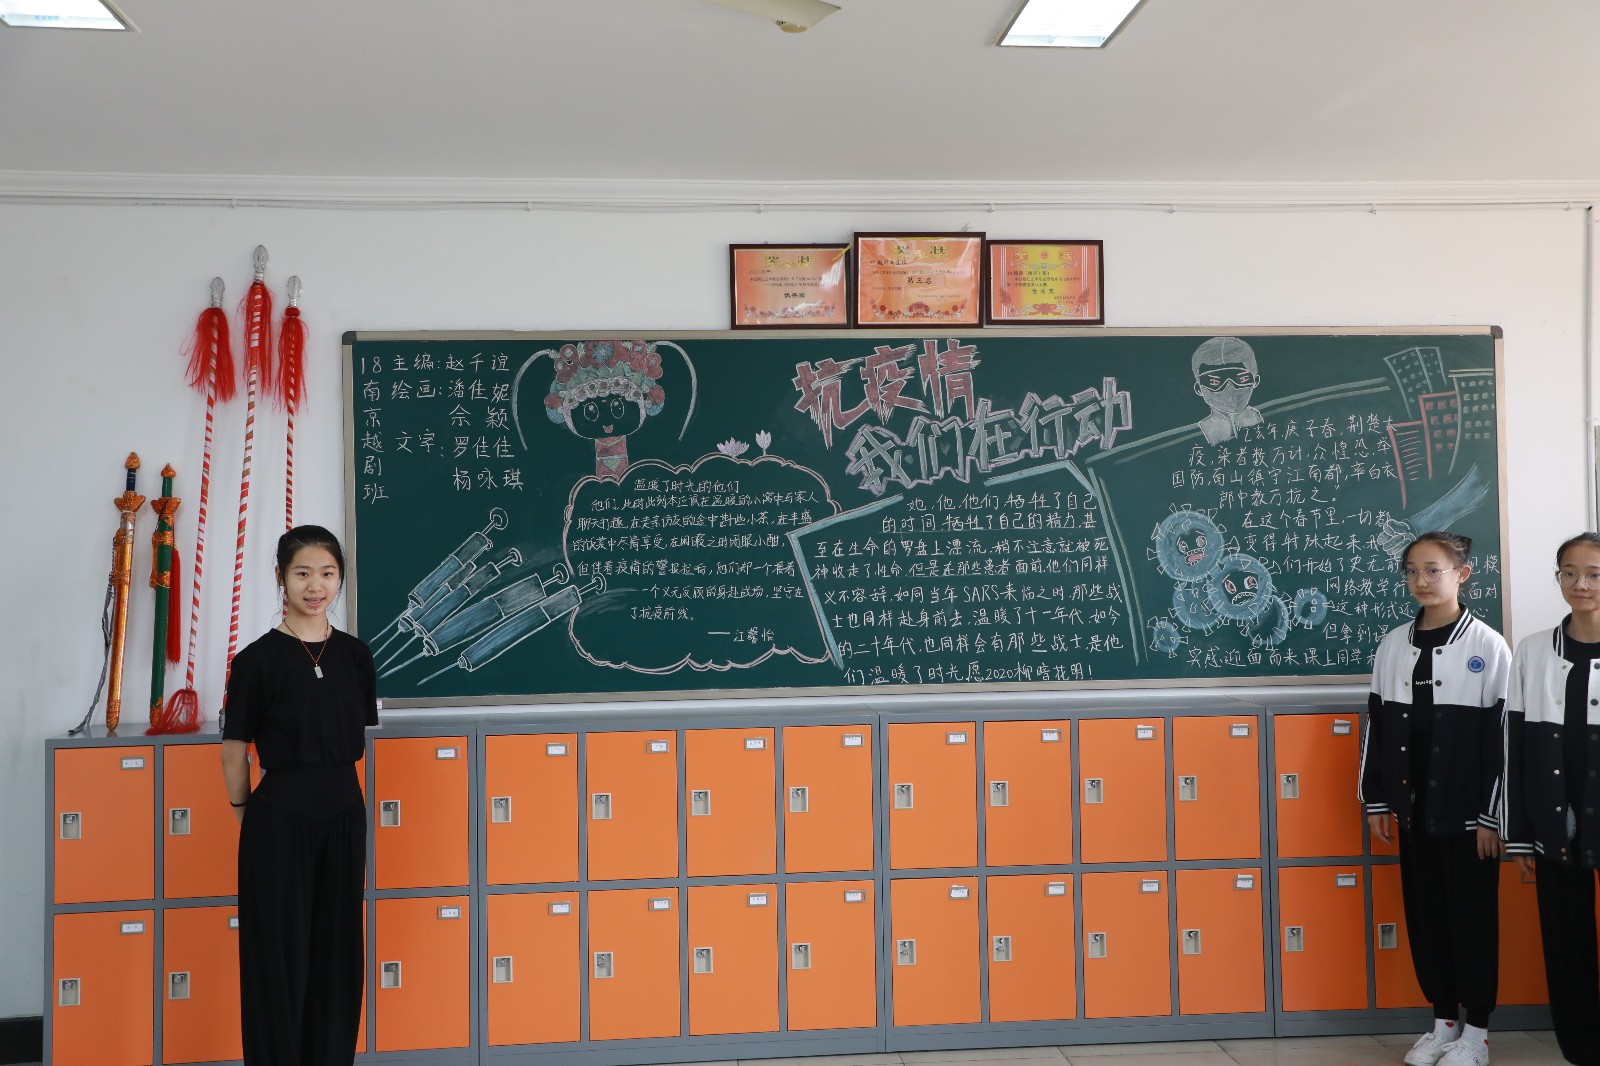 奖状
优秀奖
奖状
第三名
优秀奖
18南京越剧班
主编:赵千谊
绘画:潘佳妮
佘颖
文字:罗佳佳
杨咏琪
抗疫情
我们在行动
温暖了时光的他们
他们,此时此刻本应该在温暖的小窝中与家人
聊天打趣,在走亲访友的途中
小茶,在丰盛
的饭菜中尽情享受,在闲暇之时闭眼小酣,
但伴着疫情的警报拉响,他们却一个接着
一个义无反顾的身赴战场,坚守在
了抗疫前线。
——江馨怡
她,他,他们,牺牲了自己
的时间,牺牲了自己的精力,甚
至在生命的罗盘上漂流,稍不注意就被死
神收走了性命.但是在那些患者面前,他们同样
义不容辞,如同当年SARS来临之时,那些战
士也同样赴身前去,温暖了十一年代,如今
的二十年代,也同样会有那些战士,是他
们温暖了时光愿2020柳暗花明!
乙亥年,庚子春,荆楚大
疫,染者数万计,众惶恐,举
国防,南山镇守江南都,率白衣
郎中数万抗之。"
在这个春节里,一切都
变得特殊起来,
们开始了史无前
网络教学
面对
这种形式还
心
但拿到课
实感迎面而来.课上同学